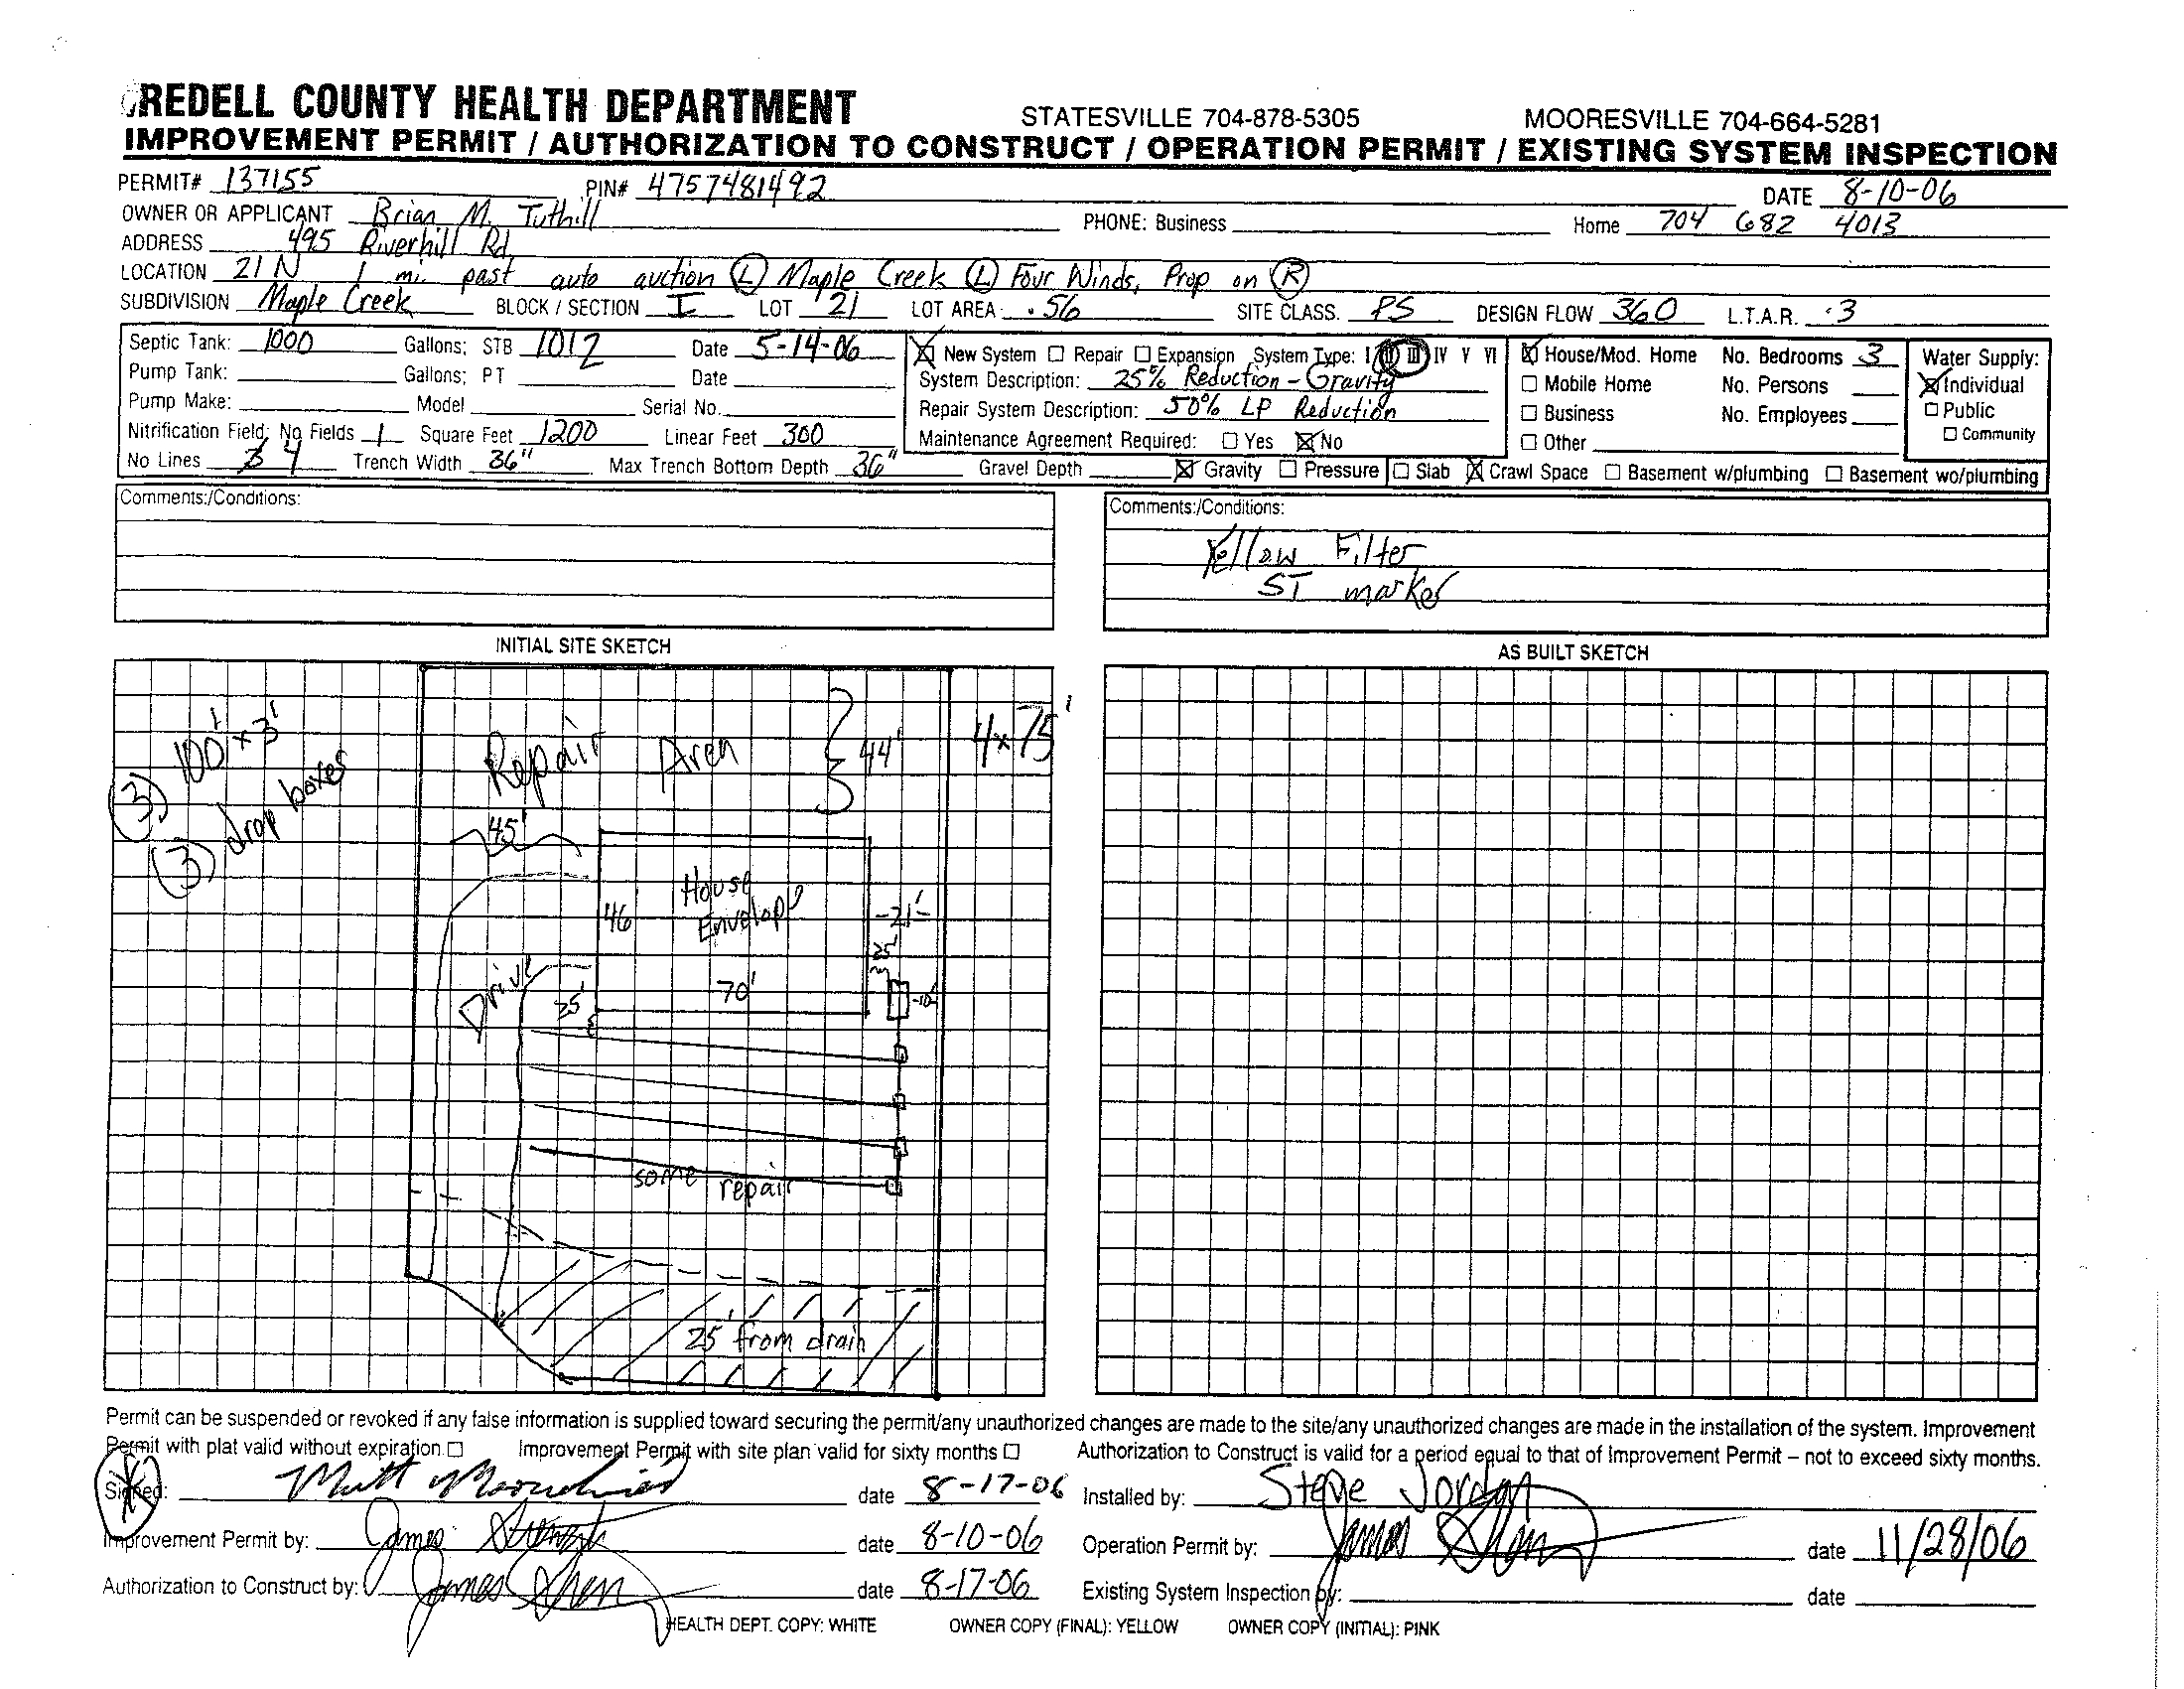 IREDELL COUNTY HEALTH DEPARTMENT STATESVILLE 704-878-5305 MOORESVILLE 704-664-5281
IMPROVEMENT PERMIT / AUTHORIZATION TO CONSTRUCT / OPERATION PERMIT / EXISTING SYSTEM INSPECTION
PERMIT# 137155 PIN# 4757481492 DATE 8-10-06
OWNER OR APPLICANT Brian M. Tuthill PHONE: Business Home 704 682 4013
ADDRESS 495 Riverhill Rd.
LOCATION 21 N 1 mi. past auto auction (L) Maple Creek (L) Four Winds, Prop on (R)
SUBDIVISION Maple Creek BLOCK / SECTION I LOT 21 LOT AREA .56 SITE CLASS. PS DESIGN FLOW 360 L.T.A.R. .3
Septic Tank: 1000 Gallons; STB 1012 Date 5-14-06
Pump Tank: Gallons; PT Date
Pump Make: Model Serial No.
Nitrification Field: No Fields 1 Square Feet 1200 Linear Feet 300
No Lines 3 4 Trench Width 36" Max Trench Bottom Depth 36" Gravel Depth ☒ Gravity ☐ Pressure
☒ New System ☐ Repair ☐ Expansion System Type: I II III IV V VI
System Description: 25% Reduction - Gravity
Repair System Description: 50% LP Reduction
Maintenance Agreement Required: ☐ Yes ☒ No
☒ House/Mod. Home No. Bedrooms 3
☐ Mobile Home No. Persons
☐ Business No. Employees
☐ Other
Water Supply:
☒ Individual
☐ Public
☐ Community
☐ Slab ☒ Crawl Space ☐ Basement w/plumbing ☐ Basement wo/plumbing
Comments:/Conditions:
Comments:/Conditions:
Yellow Filter
ST marker
INITIAL SITE SKETCH
(3) 100' x 3'
(3) drop boxes
Repair Area
44'
4x75'
45'
House
Envelope
46
70'
-21'-
25'
-10'
Drive
25'
some repair
25' from drain
AS BUILT SKETCH
Permit can be suspended or revoked if any false information is supplied toward securing the permit/any unauthorized changes are made to the site/any unauthorized changes are made in the installation of the system. Improvement
Permit with plat valid without expiration. ☐ Improvement Permit with site plan valid for sixty months ☐ Authorization to Construct is valid for a period equal to that of Improvement Permit – not to exceed sixty months.
Signed: Matt date 8-17-06 Installed by: Steve Jordan
Improvement Permit by: James date 8-10-06 Operation Permit by: James date 11/28/06
Authorization to Construct by: James date 8-17-06 Existing System Inspection by: date
HEALTH DEPT. COPY: WHITE OWNER COPY (FINAL): YELLOW OWNER COPY (INITIAL): PINK